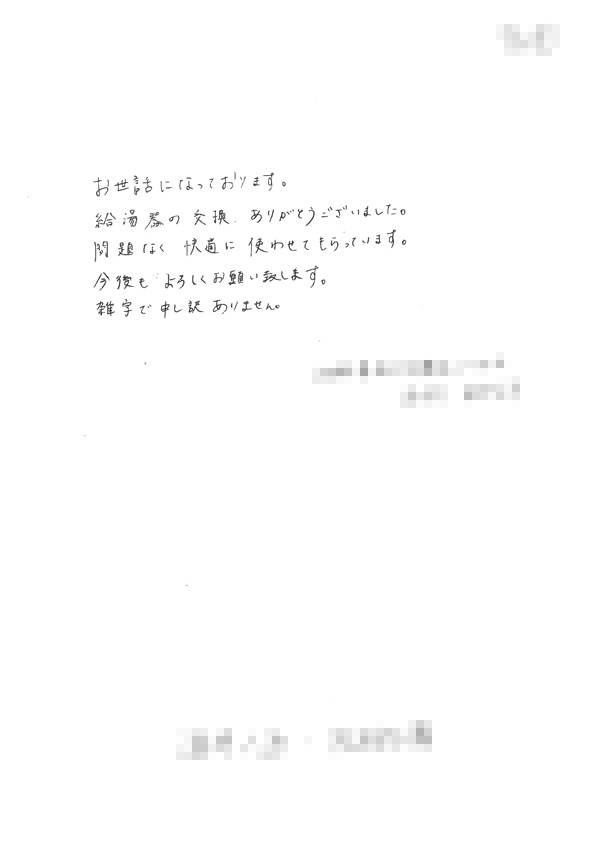 お世話になっております。
給湯器の交換、ありがとうございました。
問題なく快適に使わせてもらっています。
今後もよろしくお願い致します。
雑字で申し訳ありません。